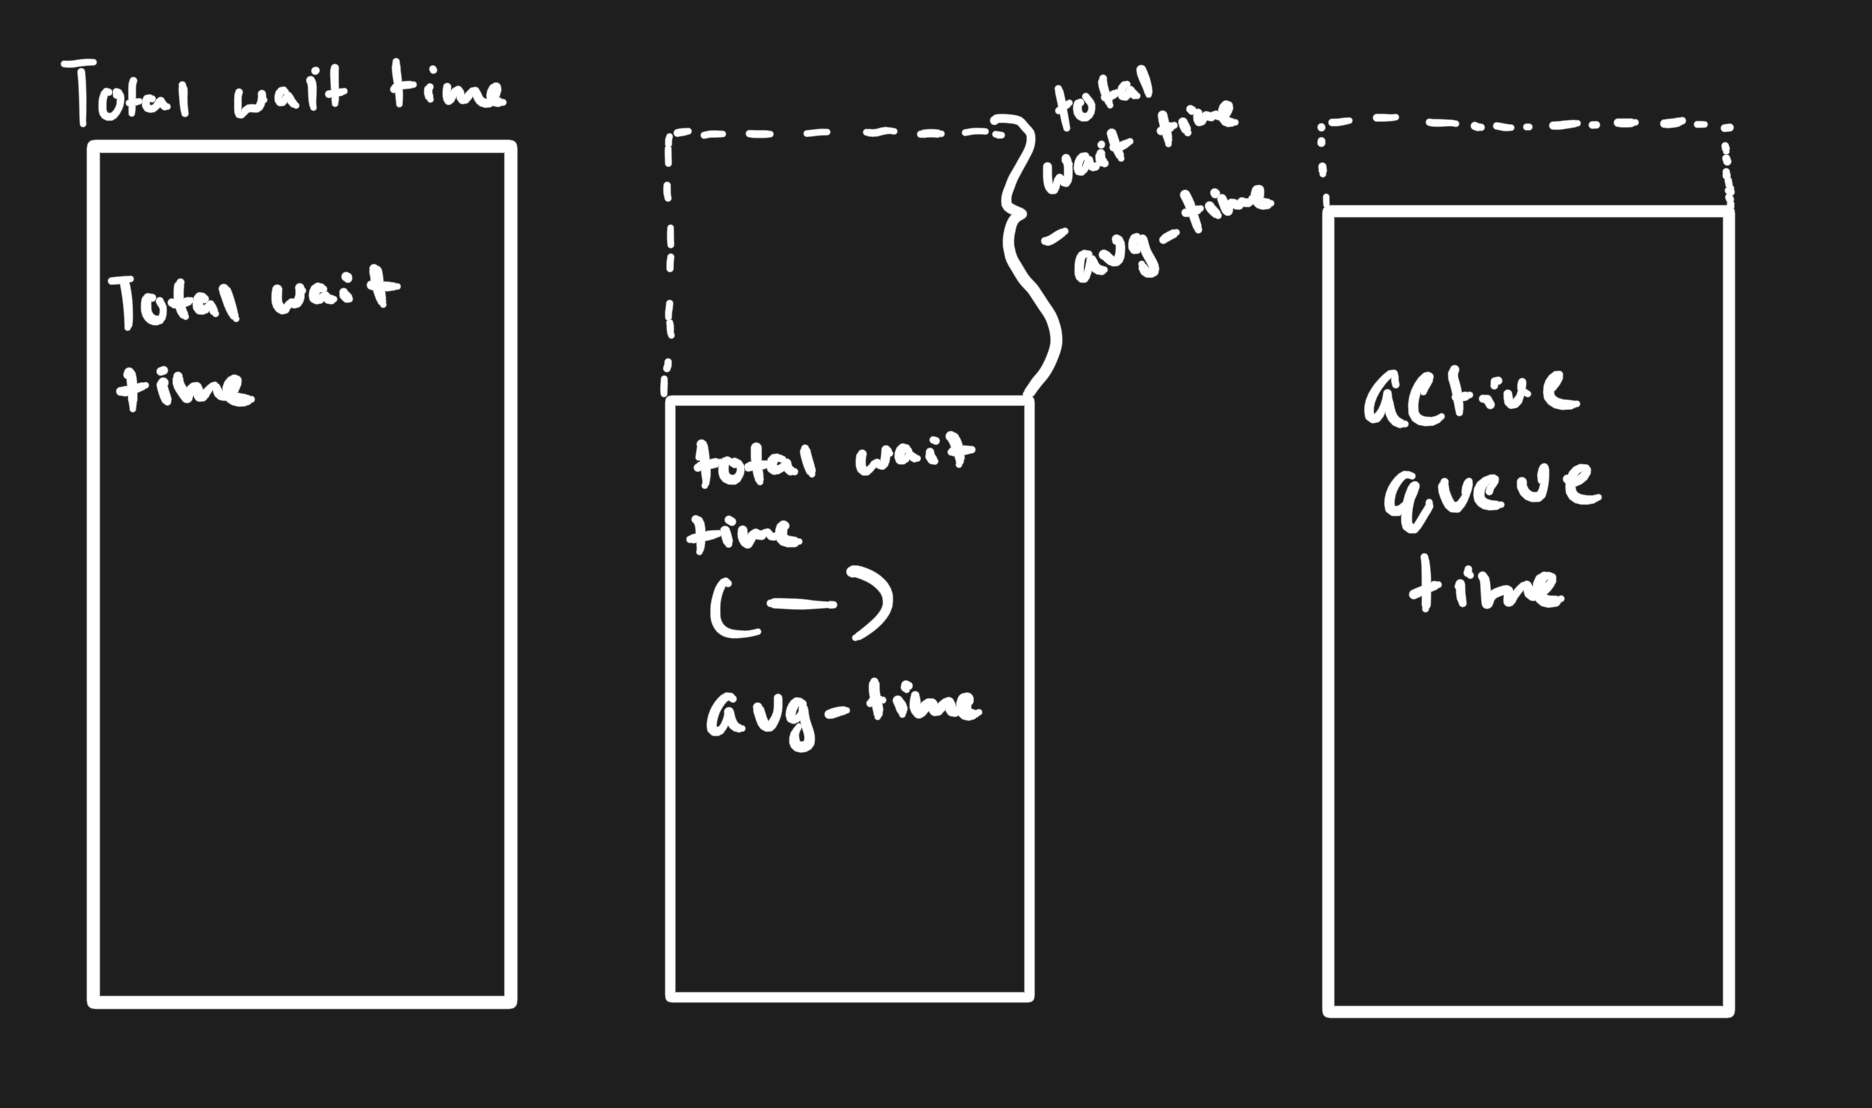 Total wait time
Total wait
time
total
wait time
- avg-time
total wait
time
(—)
avg-time
active
queue
time